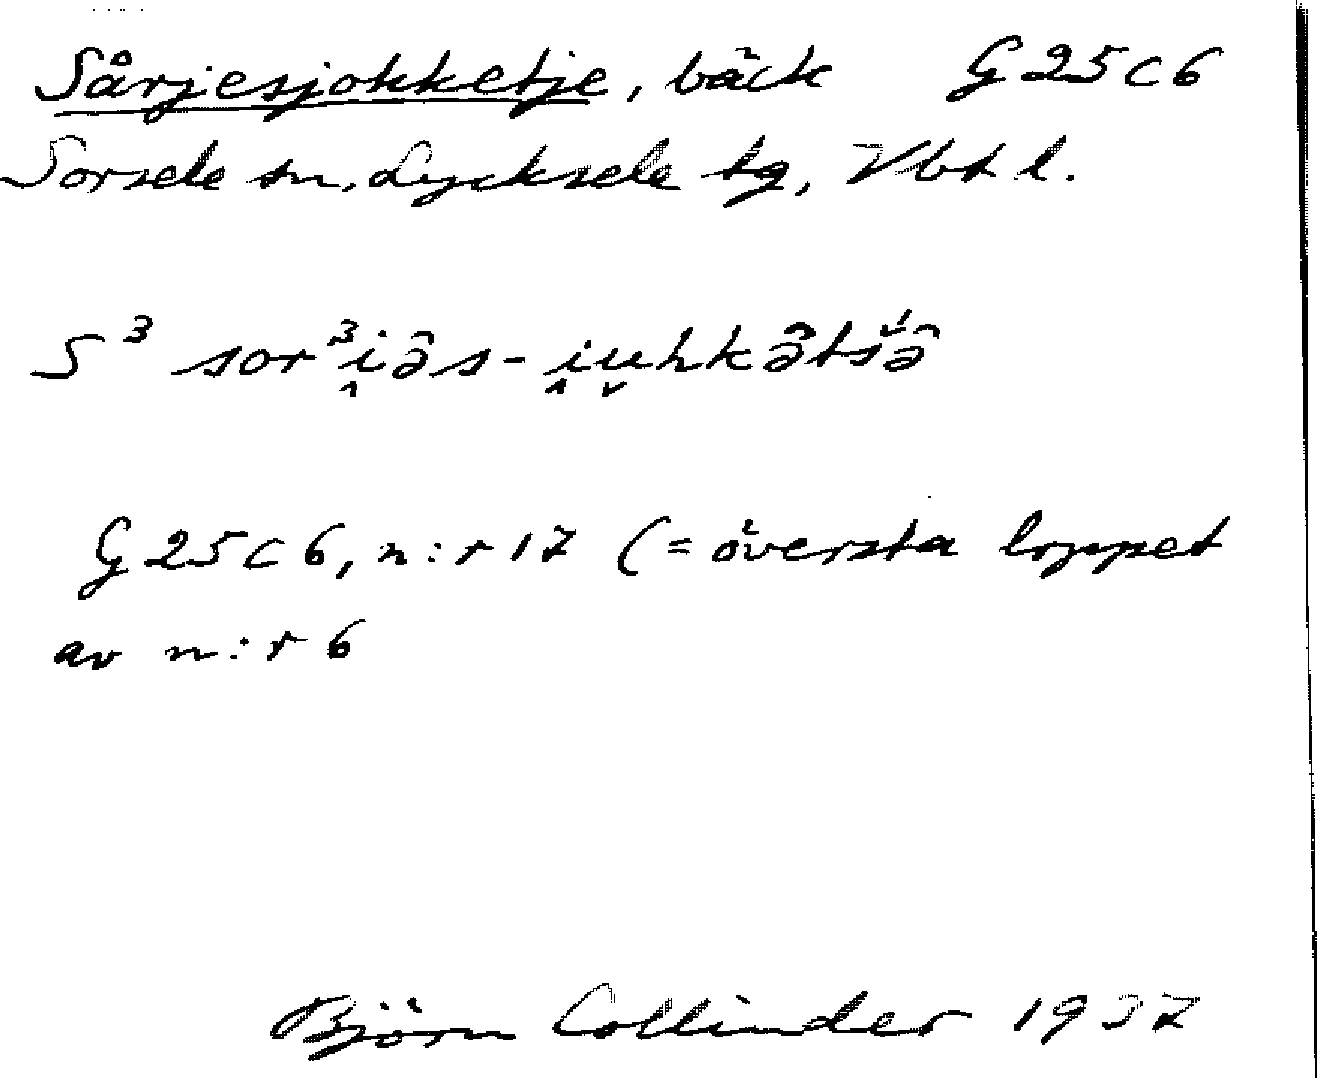 Sårjesjokketje, bäck G25c6
Sorsele sn, Lycksele tg, Vbt l.
S³ sor³i̭ə̑s-i̭u̬hkə̑̄tśə̑
G25c6, n:r 17 (= översta loppet
av n:r 6
Björn Collinder 1937